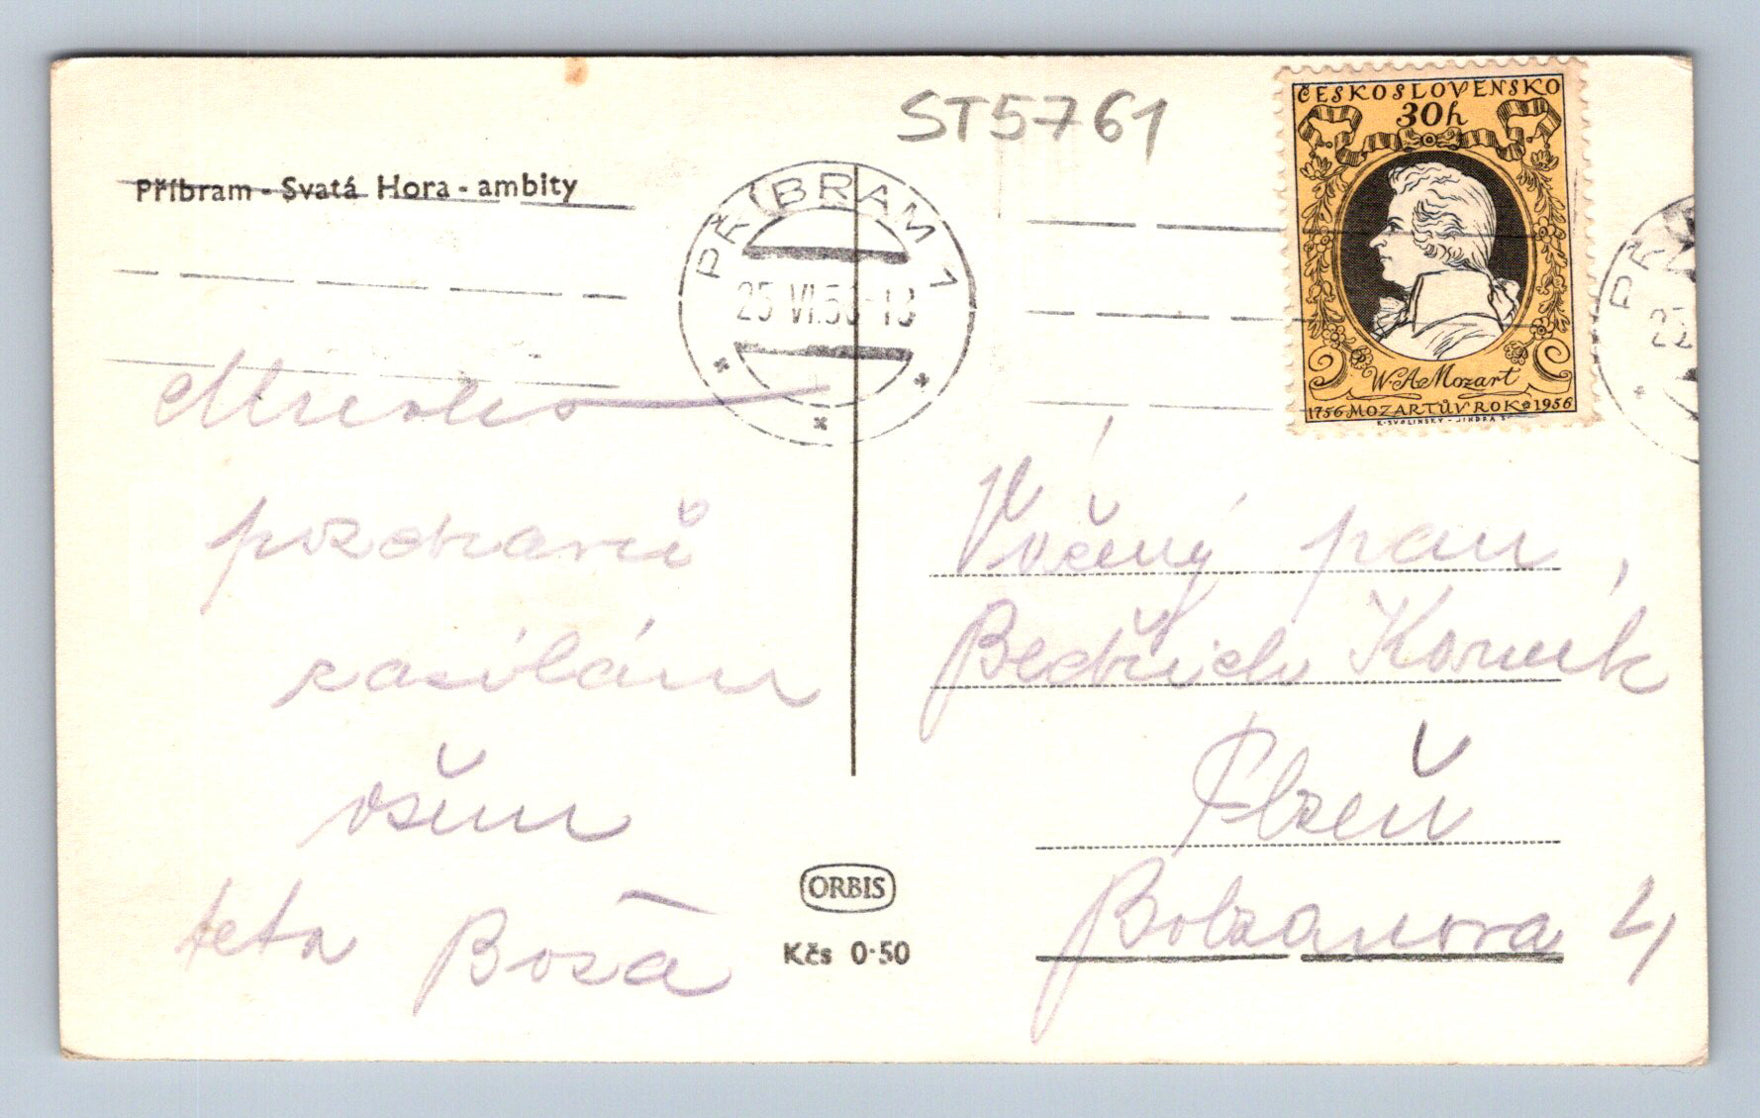 ST5761
ČESKOSLOVENSKO
30h
W.A.Mozart
1756 MOZARTŮV ROK 1956
K. SVOLINSKÝ - JINDRA
Příbram - Svatá Hora - ambity
PŘÍBRAM 1
25 VI.56-18
PŘ
Mnoho
pozdravů
zasílám
všem
teta Božа
ORBIS
Kčs 0·50
Vážený pan,
Bedřich
Plzeň
Bolzanova 4